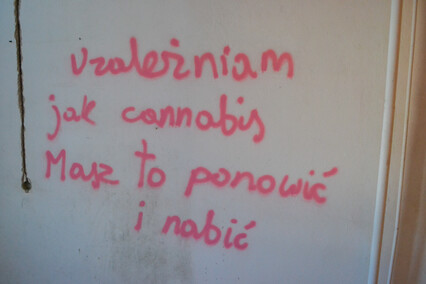 uzależniam
jak cannabis
Masz to ponowić
i nabić